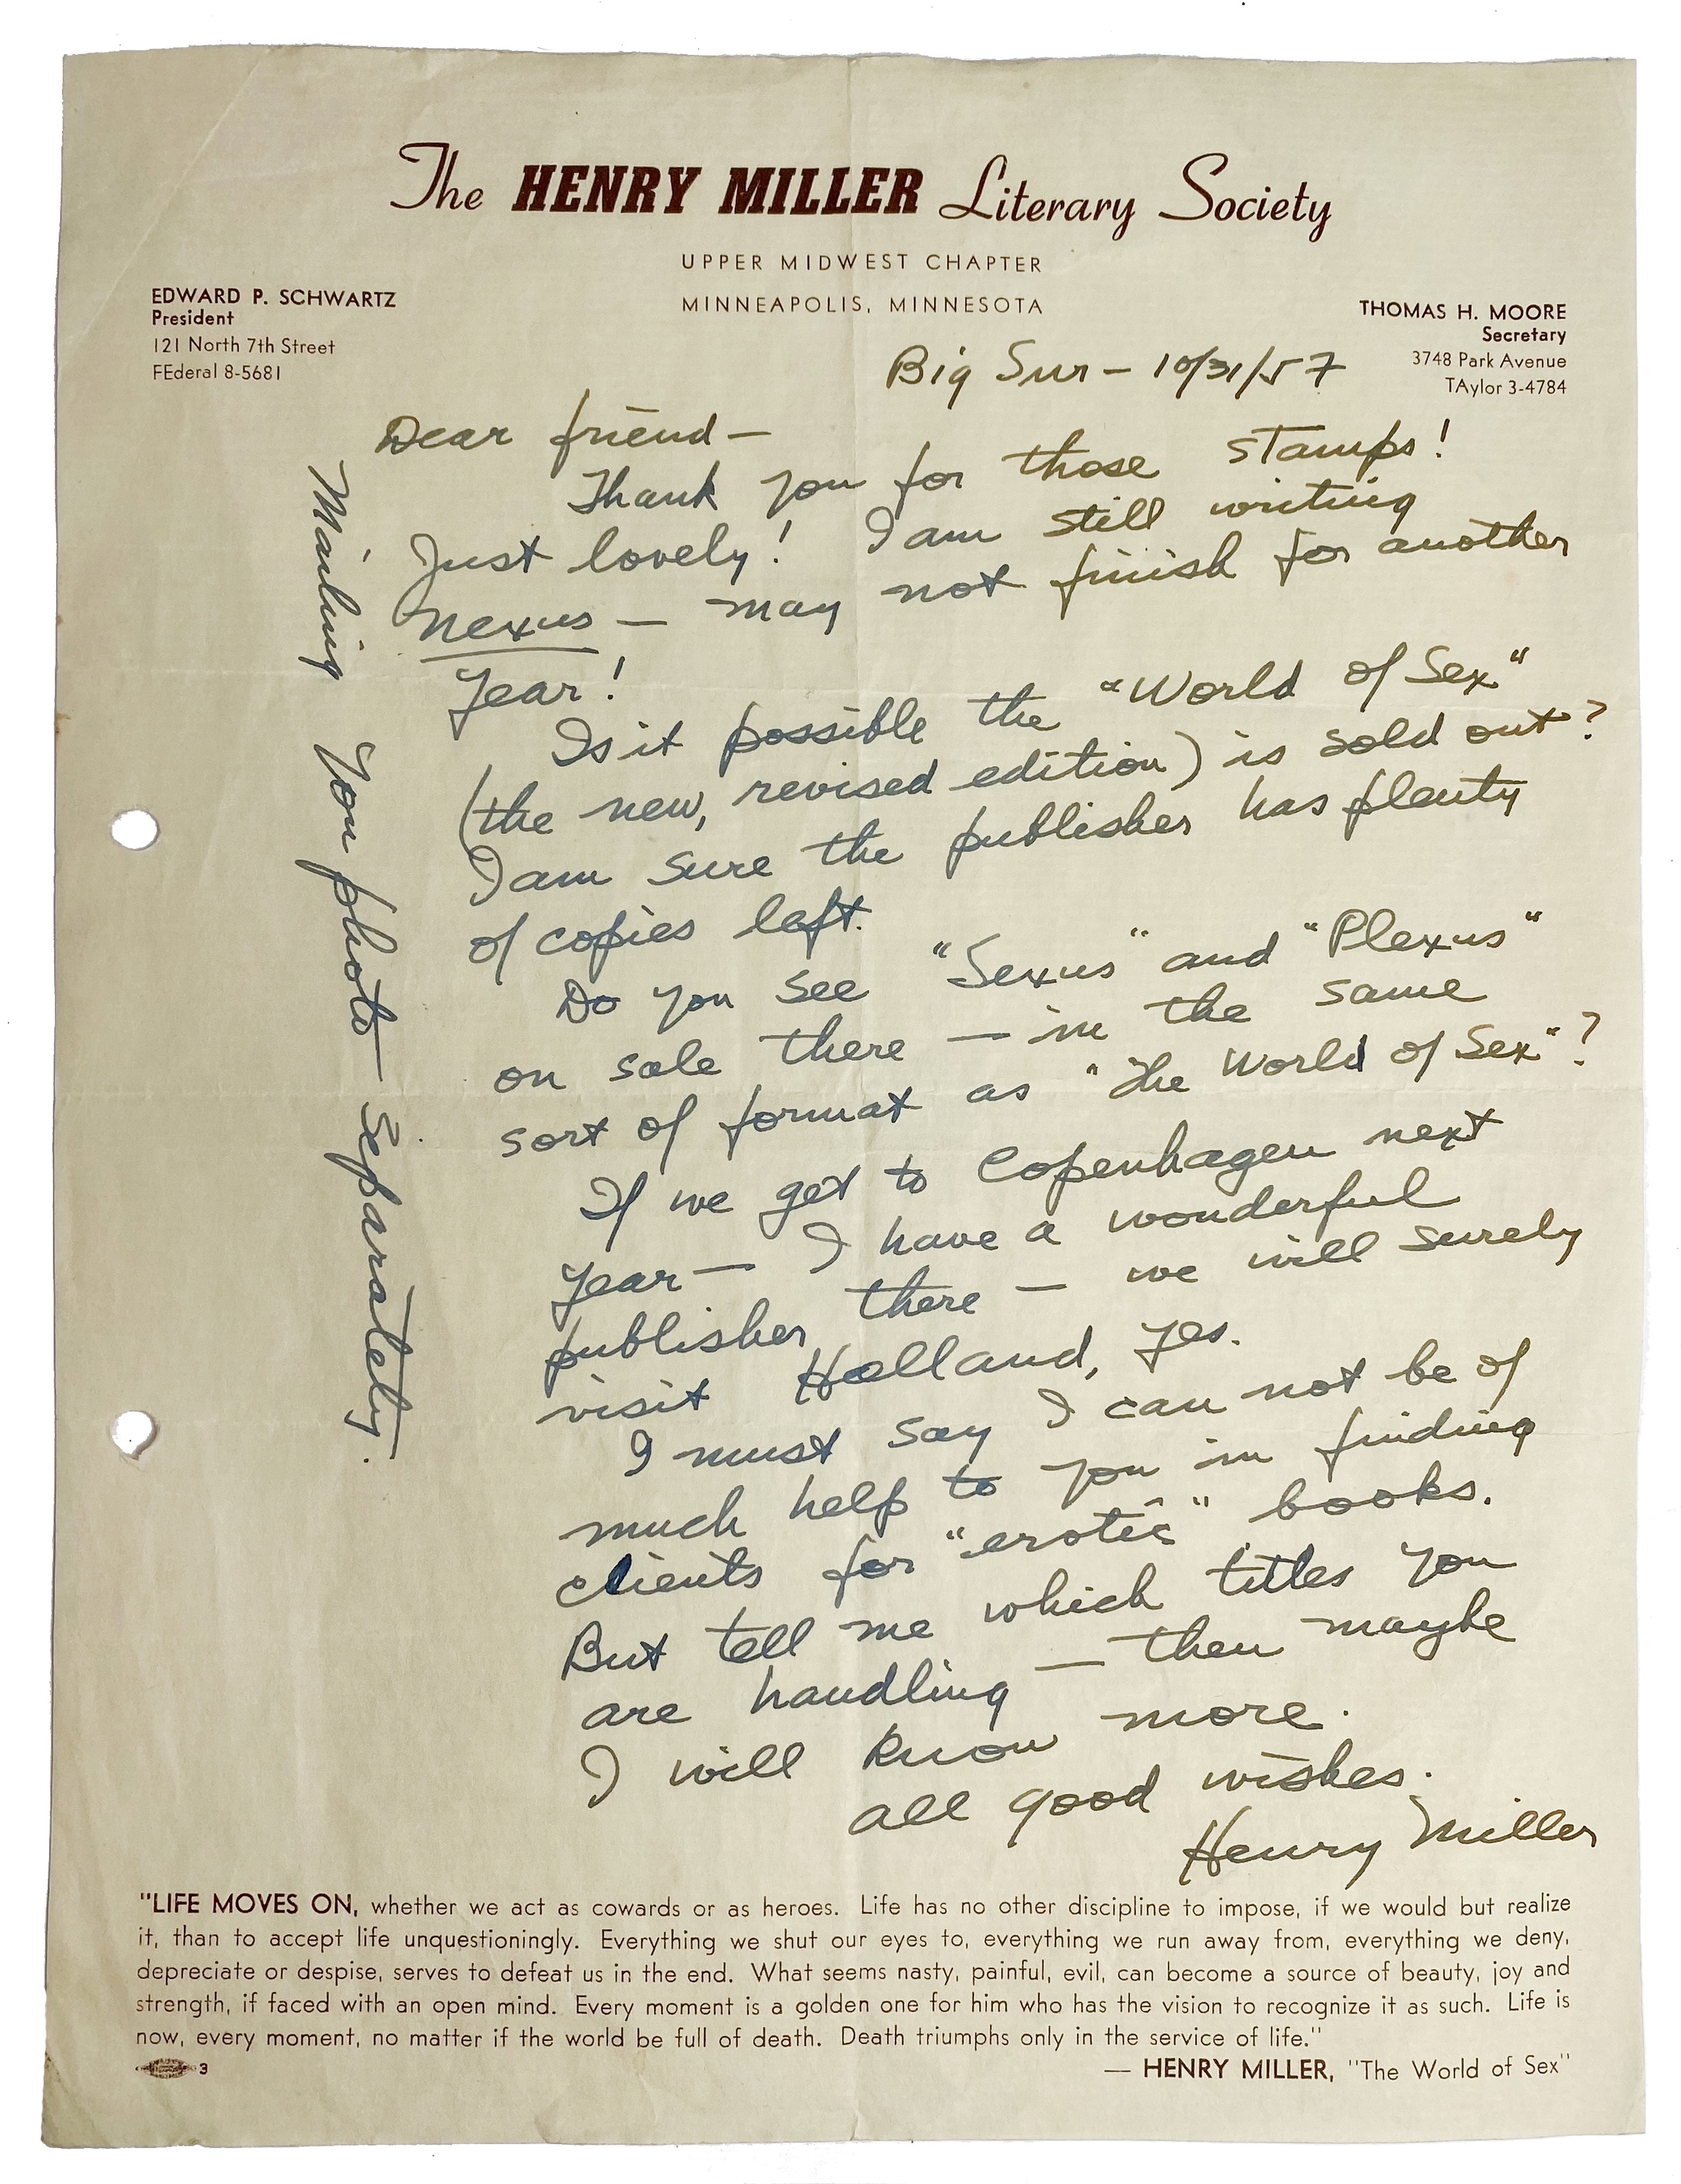 The HENRY MILLER Literary Society
UPPER MIDWEST CHAPTER
MINNEAPOLIS, MINNESOTA
EDWARD P. SCHWARTZ
President
121 North 7th Street
FEderal 8-5681
THOMAS H. MOORE
Secretary
3748 Park Avenue
TAylor 3-4784
Big Sur – 10/31/57
Dear friend –
Thank you for those stamps!
Just lovely! I am still writing
Nexus – may not finish for another
year!
Is it possible the "World of Sex"
(the new, revised edition) is sold out?
I am sure the publisher has plenty
of copies left.
Do you see "Sexus" and "Plexus"
on sale there – in the same
sort of format as "The World of Sex"?
If we get to Copenhagen next
year – I have a wonderful
publisher there – we will surely
visit Holland, yes.
I must say I can not be of
much help to you in finding
clients for "erotic" books.
But tell me which titles you
are handling – then maybe
I will know more.
All good wishes.
Henry Miller
Mailing you photo – separately.
"LIFE MOVES ON, whether we act as cowards or as heroes. Life has no other discipline to impose, if we would but realize
it, than to accept life unquestioningly. Everything we shut our eyes to, everything we run away from, everything we deny,
depreciate or despise, serves to defeat us in the end. What seems nasty, painful, evil, can become a source of beauty, joy and
strength, if faced with an open mind. Every moment is a golden one for him who has the vision to recognize it as such. Life is
now, every moment, no matter if the world be full of death. Death triumphs only in the service of life."
— HENRY MILLER, "The World of Sex"
3